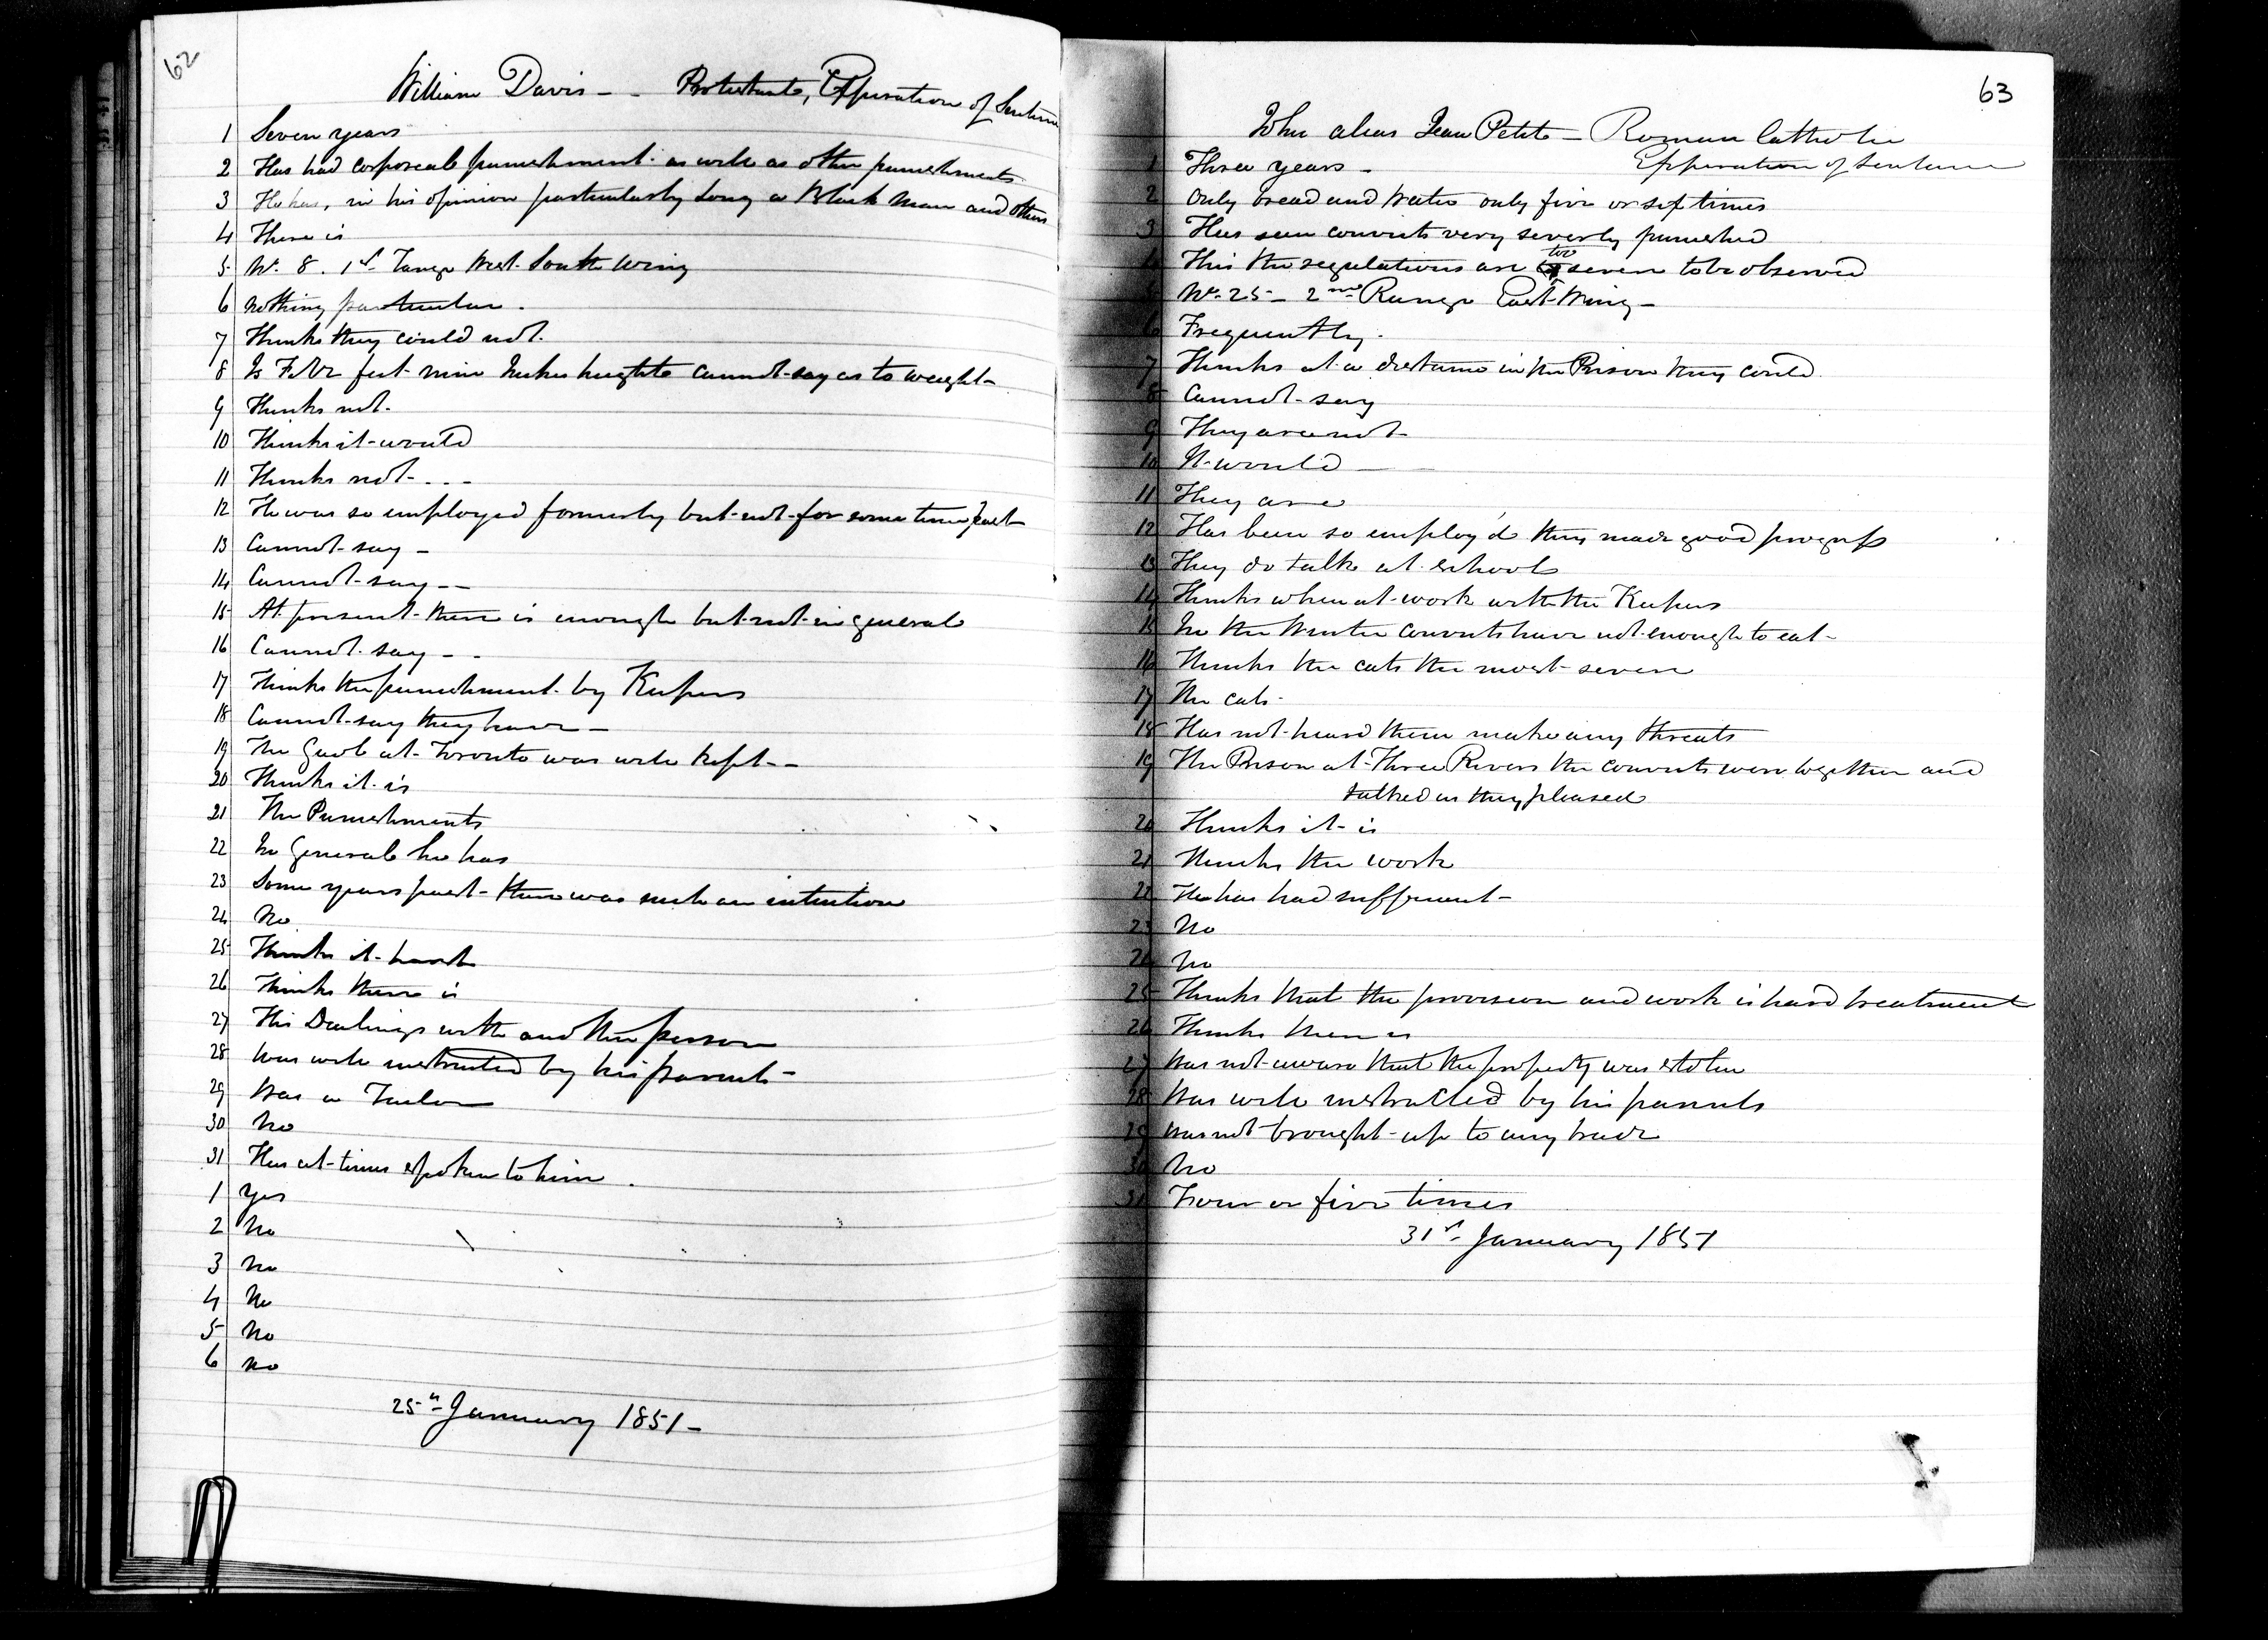 62
William Davis - - Protestant, Expiration of Sentence
1 Seven years
2 Has had corporeal punishment as well as other punishments
3 He has, in his opinion particularly Long a Black Man and others
4 There is
5 No. 8. 1st Range West South Wing
6 Nothing particular.
7 Thinks they could not.
8 Is Five feet nine Inches height cannot say as to weight -
9 Thinks not.
10 Thinks it would
11 Thinks not - - -
12 He was so employed formerly but not for some time past
13 Cannot say -
14 Cannot say - -
15 At present there is enough but not in general
16 Cannot say - -
17 Thinks the punishment by Keepers
18 Cannot say they have -
19 The Gaol at Toronto was well kept - -
20 Thinks it is
21 The Punishments
22 In General he has
23 Some years past there was such an intention
24 No
25 Thinks it harsh
26 Thinks there is
27 His Dealings with another person
28 Was well instructed by his parents -
29 Was a Tailor
30 No
31 Has at times spoken to him.
1 Yes
2 No
3 No
4 No
5 No
6 No
25th January 1851 -
63
John alias Jean Petit - Roman Catholic
Expiration of Sentence
1 Three years -
2 Only bread and water only five or six times
3 Has seen convicts very severly punished
4 This the regulations are too severe to be observed
5 No. 25 - 2nd Range East Wing -
6 Frequently.
7 Thinks at a distance in the Prison they could
8 Cannot say
9 They are not -
10 It would -
11 They are
12 Has been so employ'd they made good progress
13 They do talk at school
14 Thinks when at work with the Keepers
15 In the Winter convicts have not enough to eat -
16 Thinks the cats the most severe
17 The cats -
18 Has not heard them make any threats
19 The Prison at Three Rivers the convicts were together and
talked as they pleased
20 Thinks it is
21 Thinks the work
22 He has had sufficient -
23 No
24 No
25 Thinks that the provision and work is hard treatment
26 Thinks there is
27 Was not aware that the property was stolen
28 Was well instructed by his parents
29 Was not brought up to any trade
30 No
31 Four or five times
31st January 1851